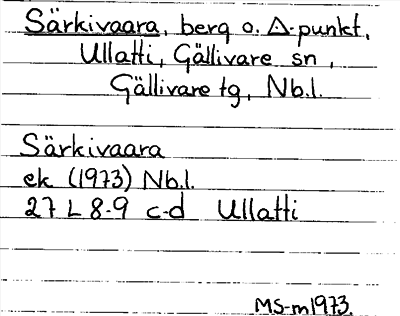 Särkivaara, berg o. Δ-punkt,
Ullatti, Gällivare sn,
Gällivare tg, Nb.l.
Särkivaara
ek (1973) Nb.l.
27 L 8-9 c-d Ullatti
MS-m1973.